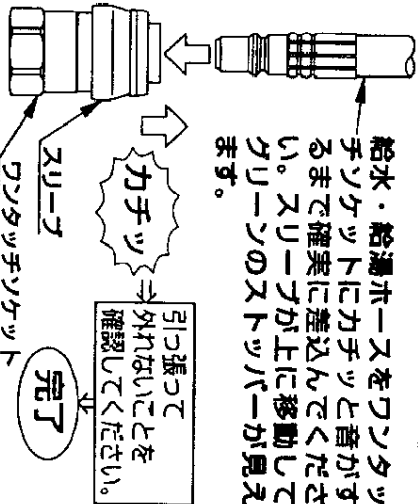 給水・給湯ホースをワンタッ
チソケットにカチッと音がす
るまで確実に差込んでくださ
い。スリーブが上に移動して
グリーンのストッパーが見え
ます。
カチッ
引っ張って
外れないことを
確認してください。
完了
スリーブ
ワンタッチソケット